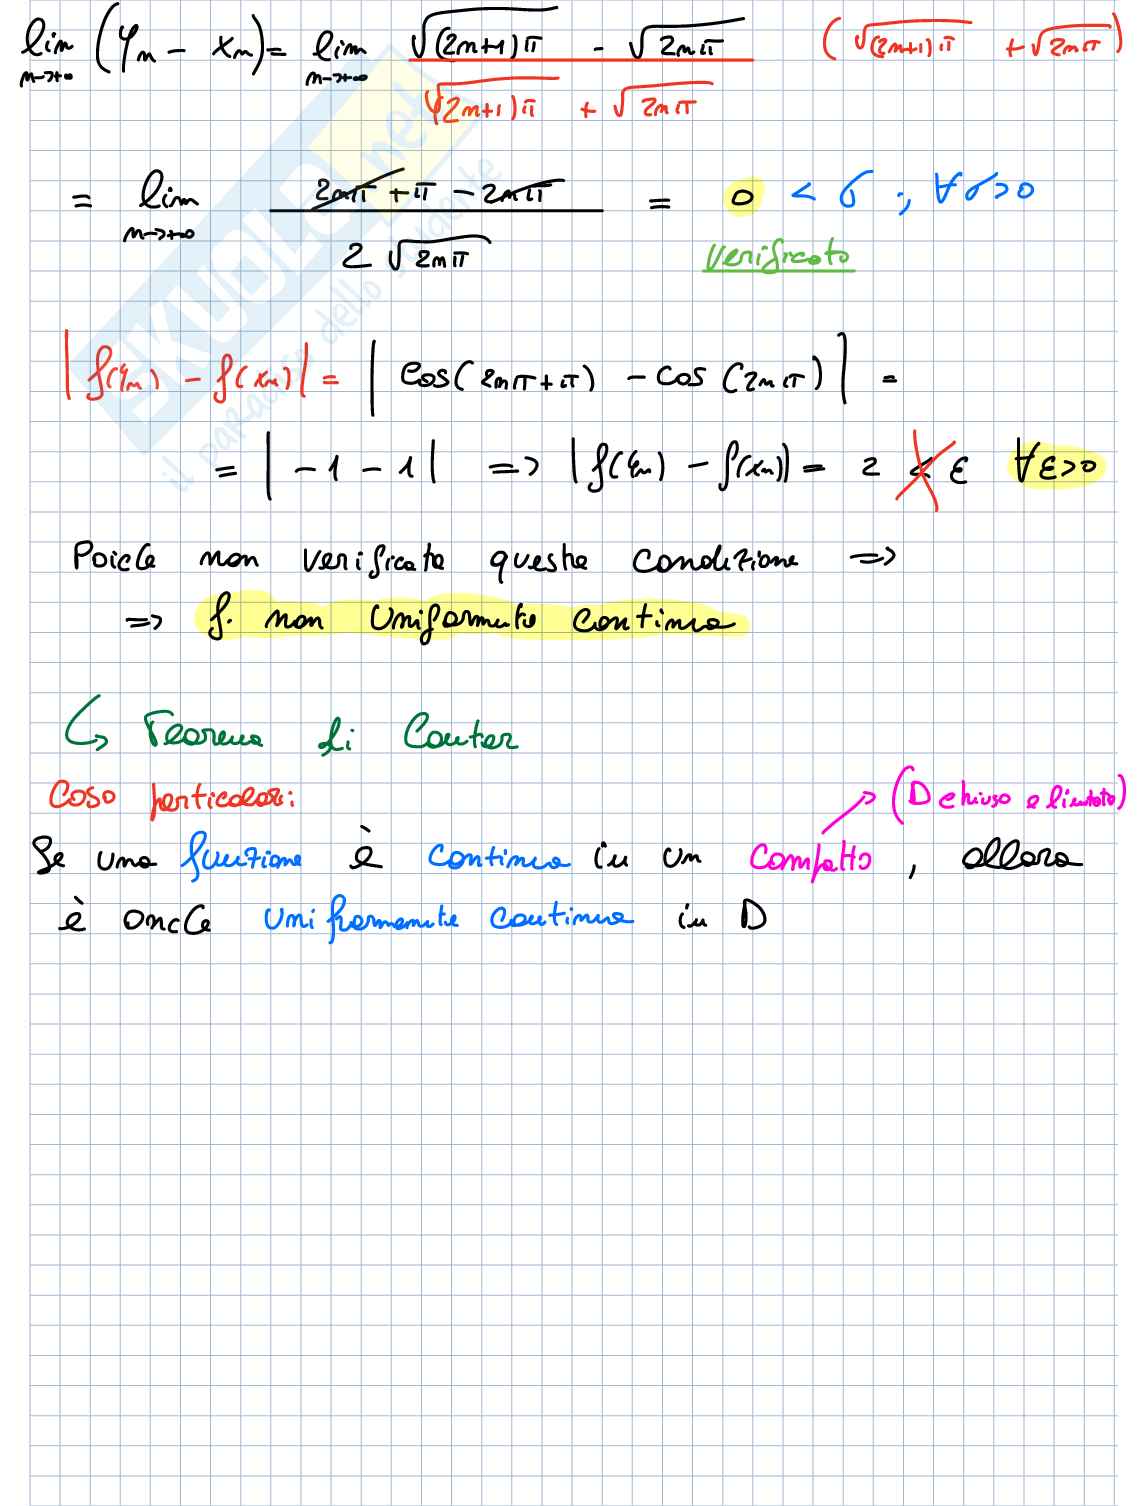 lim n→+∞ (φn − xn) = lim n→+∞ √(2n+1)π − √2nπ / √(2n+1)π + √2nπ (√(2n+1)π + √2nπ)
= lim n→+∞ 2nπ + π − 2nπ / 2√2nπ = 0 < σ ; ∀σ>0
verificato
|f(φn) − f(xn)| = |cos(2nπ+π) − cos(2nπ)| =
= |−1 −1| => |f(φn) − f(xn)| = 2 < ε ∀ε>0
Poiché non verificata questa condizione =>
=> f. non Uniformnte continua
↳ Teorema di Canter
Caso particolare:
(D chiuso e limitato)
Se una funzione è continua in un compatto, allora
è anche uniformemente continua in D
SKUOLA.net
il paradiso dello studente